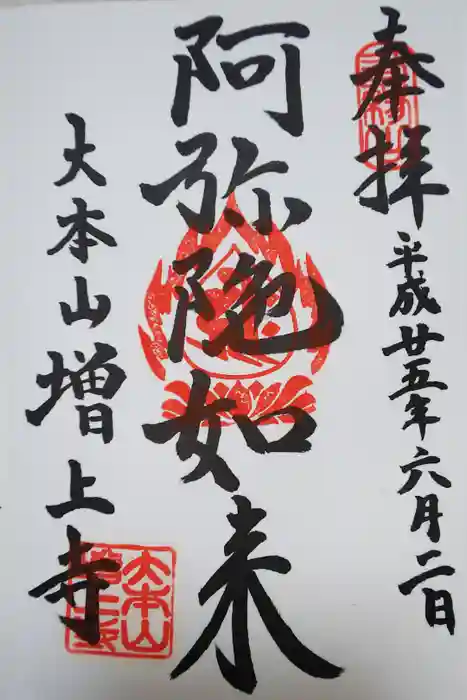 奉拝
平成廿五年六月二日
阿弥陀如来
大本山増上寺
大本山
増上寺